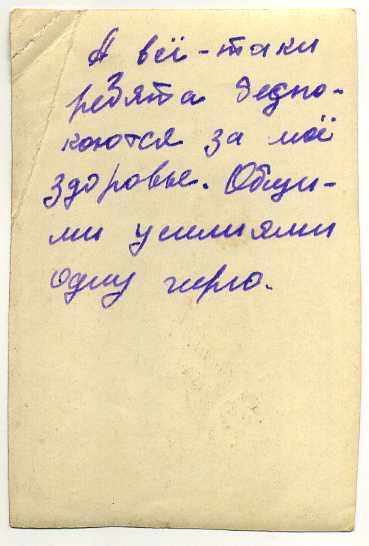 А всё-таки
ребята беспо-
коются за моё
здоровье. Общи-
ми усилиями
одну